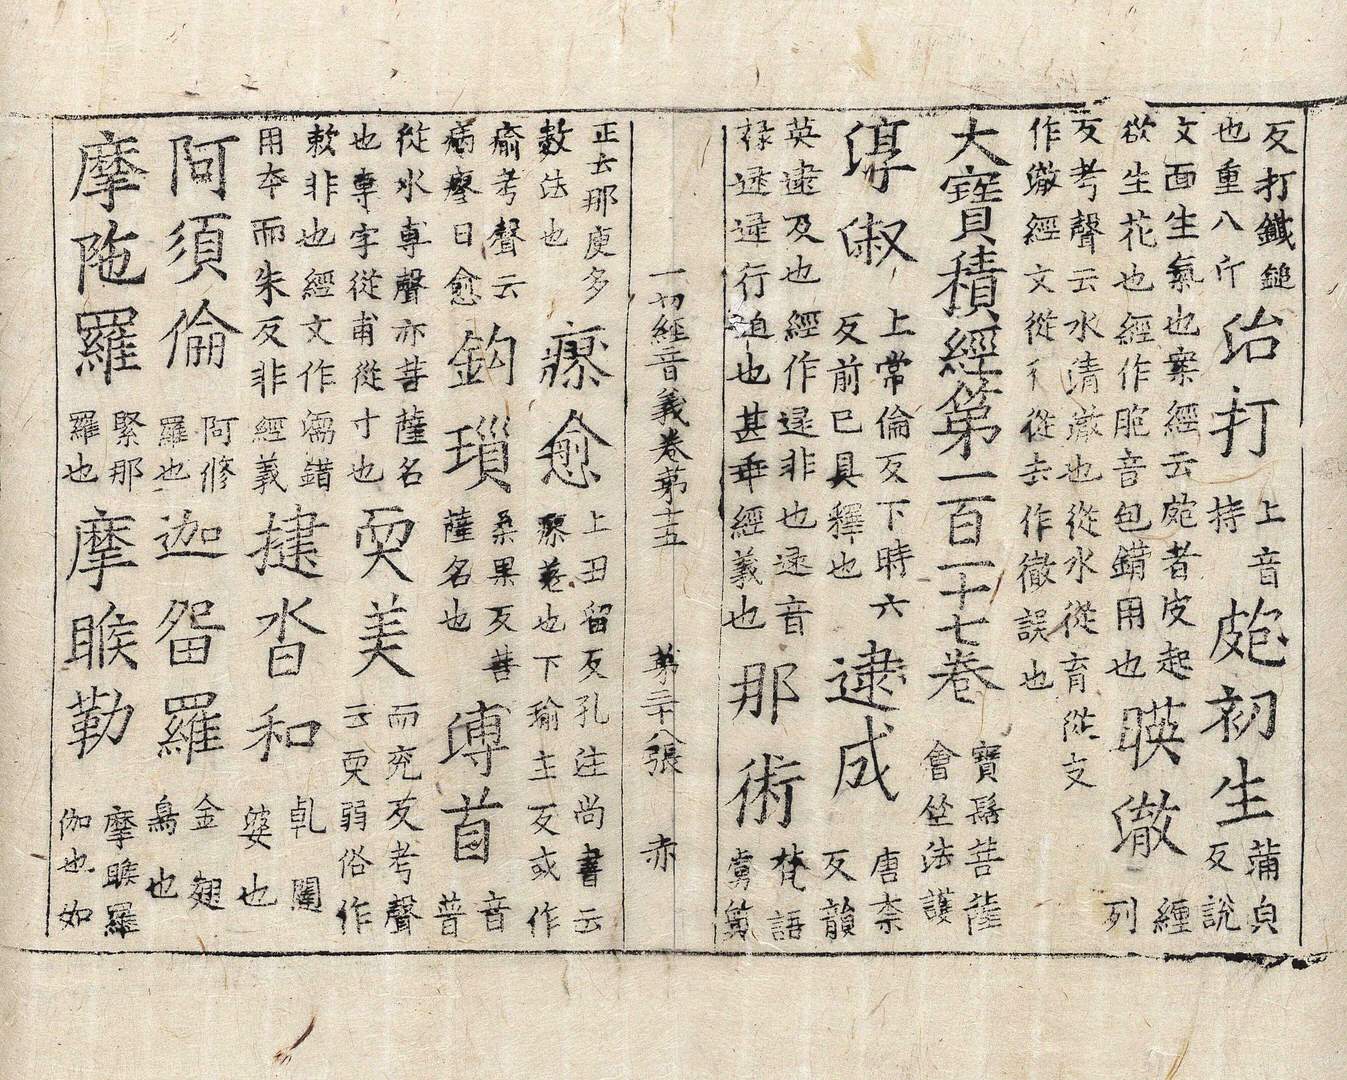 反打鐵鎚也重八斤治打上音持皰初生蒲皃反說
文面生氣也案經云皰者皮起欲生花也經作胞音包錯用也暎澈緾列
反考聲云水清澈也從水從育從攵作澈經文從彳從去作徹誤也
大寶積經第一百一十七卷寶髻菩薩會竺法護
淳淑上常倫反下時六反前已具釋也逮成唐柰反韻
英逮及也經作逯非也逯音祿逯逯行迫也甚乖經義也那術梵語虜質
一切經音義卷第十五 第三十八張 赤
正云那庾多數法也瘳愈上丑留反孔注尚書云瘳差也下瑜主反或作
瘉考聲云病瘳曰愈鈎瑣桑果反菩薩名也尃首音普
從水尃聲亦菩薩名也專字從甫從寸也耎美而兖反考聲云耎弱俗作
㪍非也經文作濡錯用本而朱反非經義揵沓和乹闥婆也
阿須倫阿修羅也迦畱羅金翅鳥也
摩陁羅緊那羅也摩睺勒摩睺羅伽也如